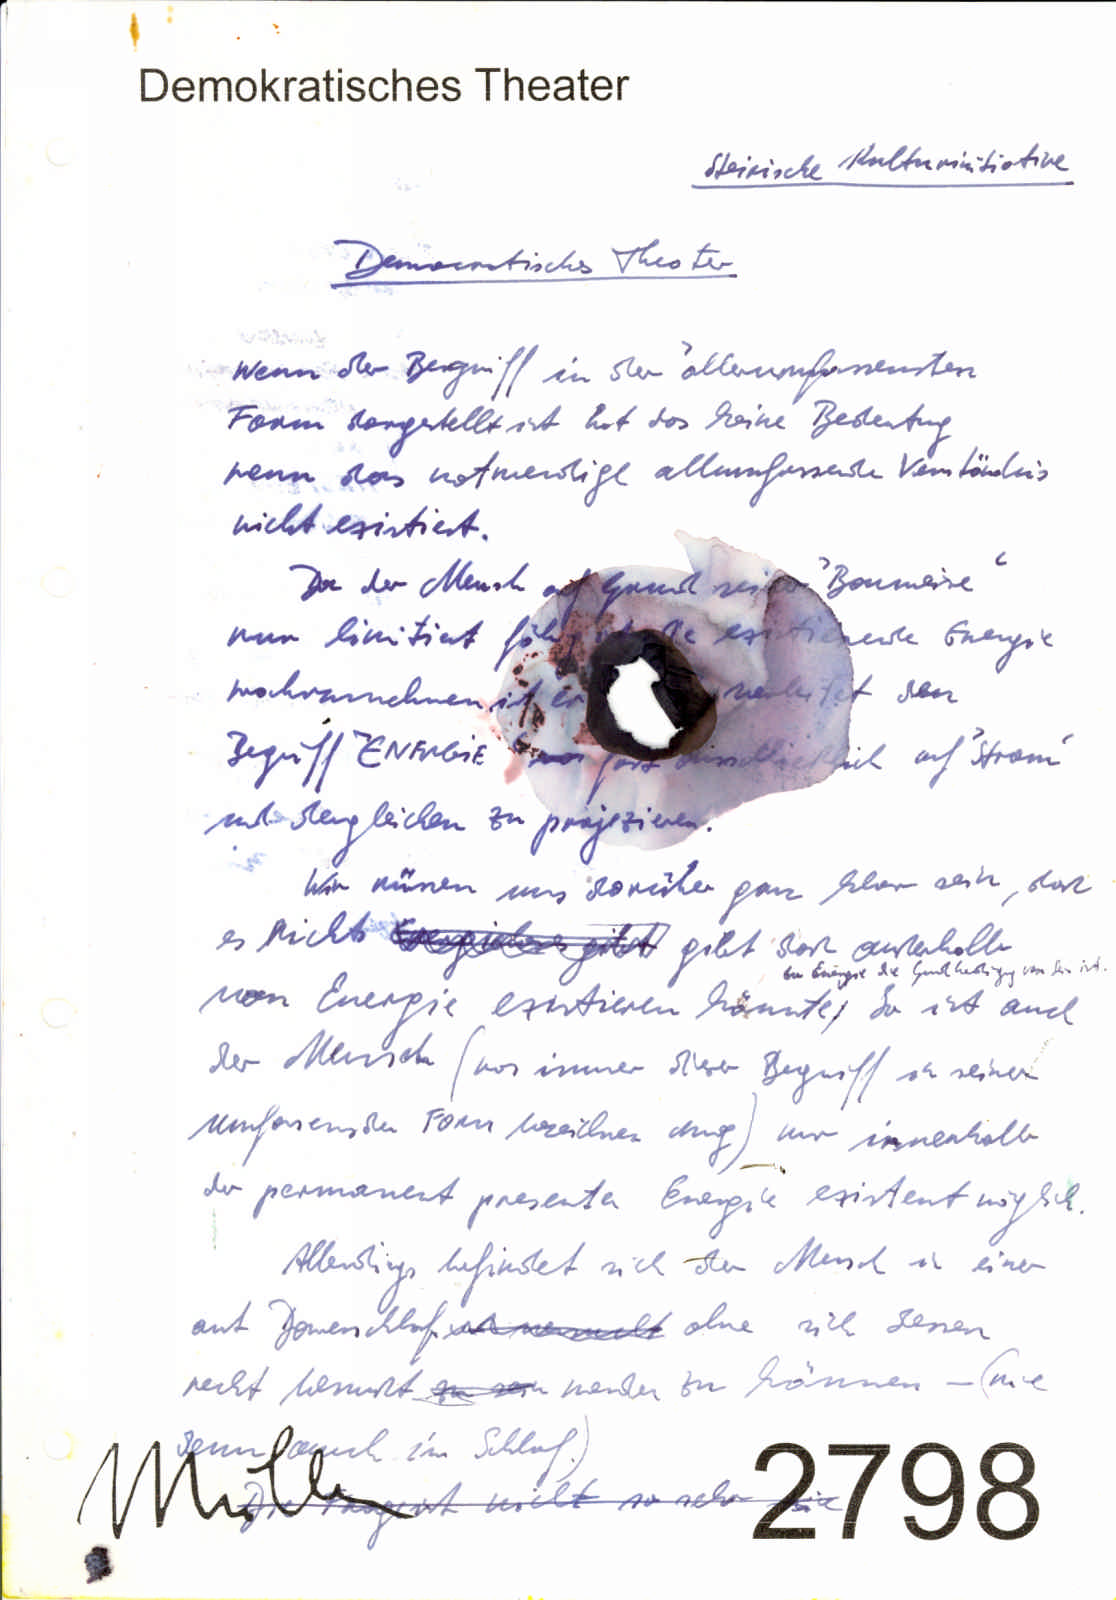 Demokratisches Theater
Steirische Kulturinitiative
Democratisches Theater
Wenn der Begriff in der "allerumfassensten
Form dargestellt ist hat das keine Bedeutung
wenn das notwendige allumfassende Verständnis
nicht existiert.
Da der Mensch auf Grund seiner "Bauweise"
nur limitiert fähig ist die existierende Energie
wahrzunehmen ist er verleitet den
Begriff "ENERGIE" fast ausschließlich auf "Strom"
und dergleichen zu projezieren.
Wir müssen uns darüber ganz klar sein, dass
es Nichts gibt dass außerhalb
die Energie die Grundbedingung von ist.
von Energie existieren könnte, So ist auch
der Mensch (was immer dieser Begriff in seiner
umfassenden Form bezeichnen mag) nur innerhalb
der permanent presenten Energie existent möglich.
Allerdings befindet sich der Mensch in einer
art Dauerschlaf ohne sich dessen
recht bewusst zu sein werden zu können – (wie
denn auch im Schlaf.)
Die Frage ist nicht so sehr die
Müller
2798